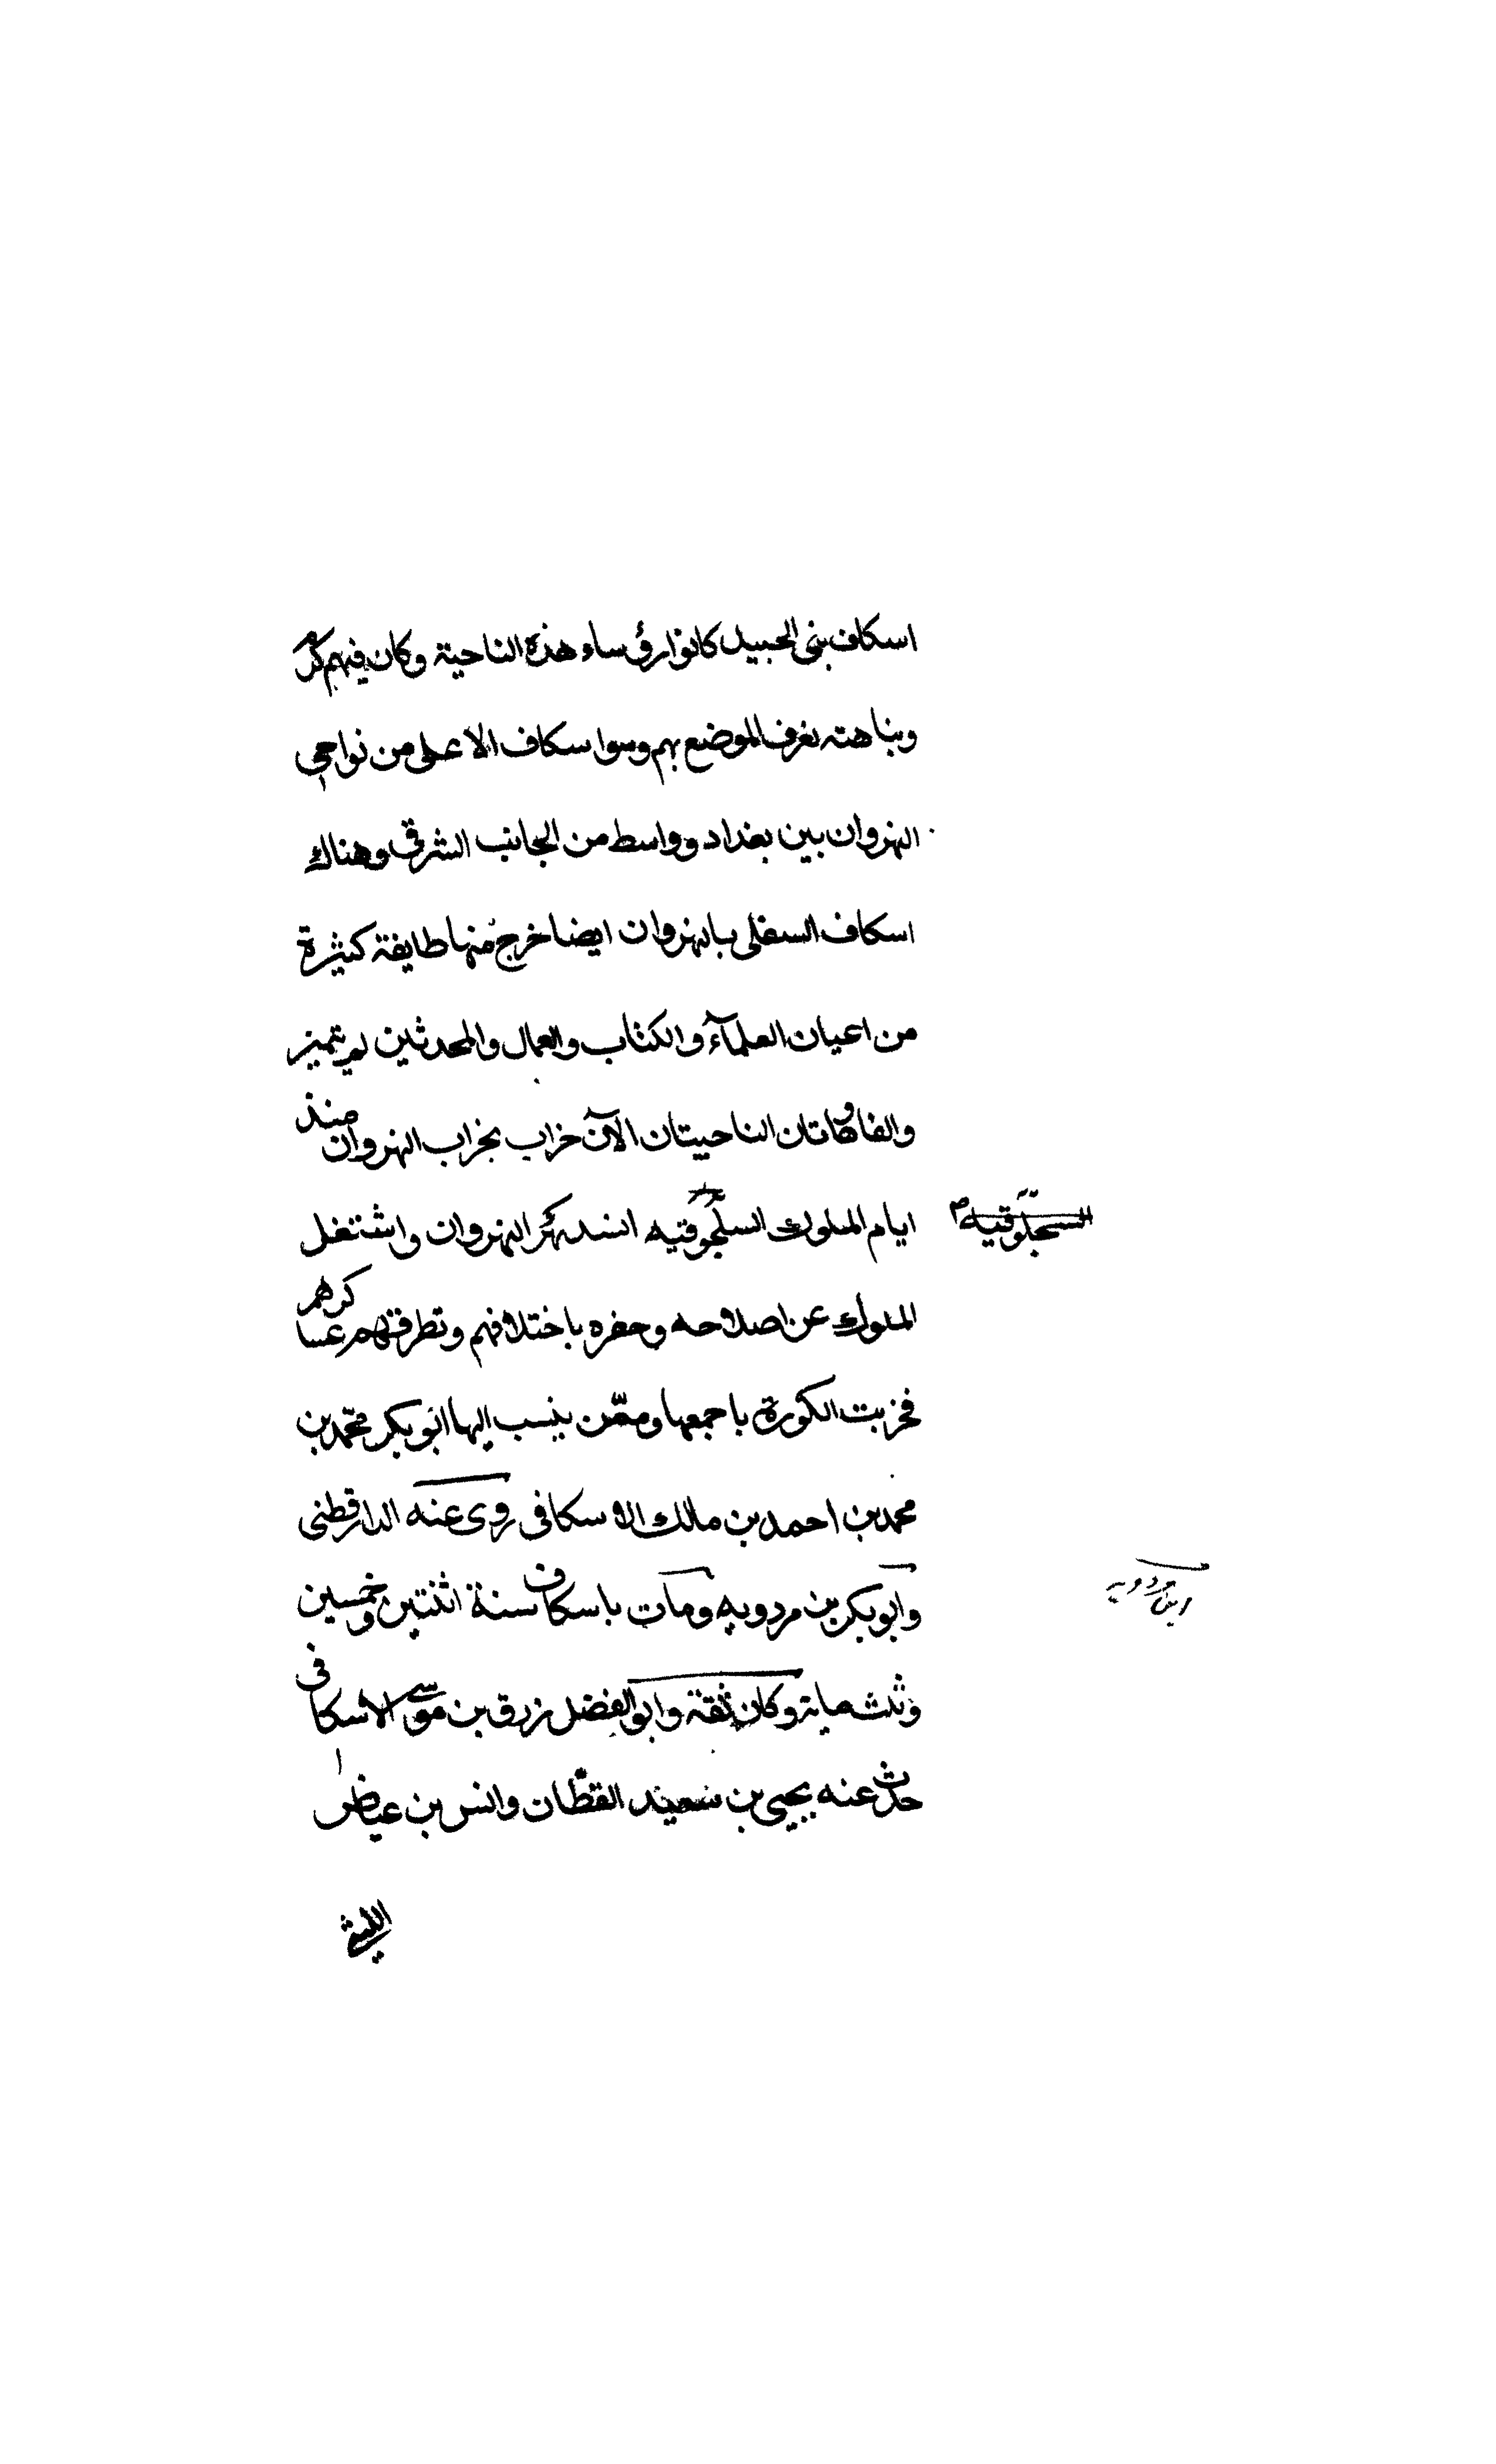 اسكاف بنى الجبيد كانوا رؤساء هذه الناحية وكان فيهم كرم
ونباهته يعرف الموضع بهم وسوا سكاف الاعلى من نواحي
النهروان بين بغداد وواسط من الجانب الشرقي وهناك
اسكاف السفلى بالنهروان ايضا خرج منها طايفة كثيرة
من اعيان العلمآء والكتاب والعمال والمحدثين لم يتميز
والناحيتان الآن خراب بخراب النهروان منذ
ايام الملوك السلجوقيه انسد نهر النهروان واشتغل
السجلوقيه
الملوك عن اصلاحه وحفره باختلافهم وتطرقهم عساكرهم
فخربت الكورة باجمعها وممّن ينسب اليها ابو بكر محمّد بن
محمد بن احمد بن مالك الاسكافى روى عنه الدارقطنى
وابو بكر بن مردويه ومات باسكاف سنة اثنتين وخمسين
ابن مردويه
وثلث ماية وكان ثقة وابو الفضل رزق بن موسى الاسكافى
حدث عنه يحيى بن سعيد القطّان وانس بن عياض
الليثى